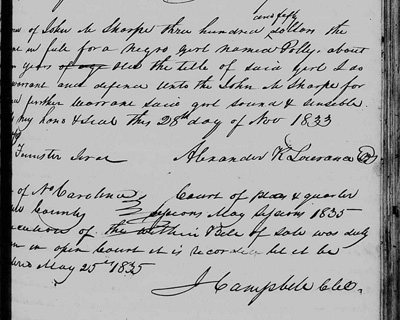 and fifty
of John M Sharpe three hundred dollars the
in full for a Negro girl named Polly, about
years of age old the title of said girl I do
warrant and defend unto the John M Sharpe for
further warrant said girl sound & sensible.
my hand & seal this 28th day of Nov 1833
Alexander K Lourance
of No Carolina Court of pleas & quarter
County Sessions May Sessions 1835
execution of the within Bill of Sale was duly
in open Court it is recorded let it be
May 25th 1835
J Campbell Clk.